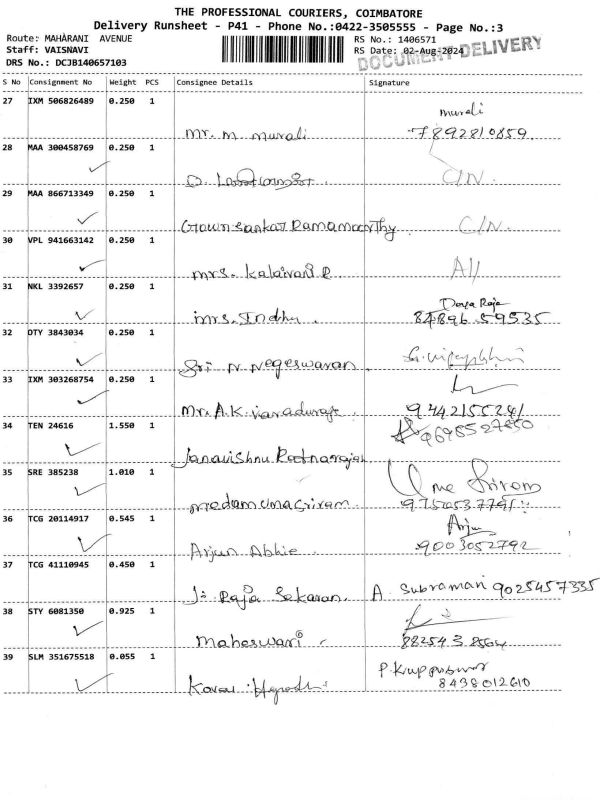 THE PROFESSIONAL COURIERS, COIMBATORE
Delivery Runsheet - P41 - Phone No.:0422-3505555 - Page No.:3
Route: MAHARANI AVENUE
RS No.: 1406571
Staff: VAISNAVI
RS Date: 02-Aug-2024
DOCUMENT DELIVERY
DRS No.: DCJB140657103
S No Consignment No Weight PCS Consignee Details Signature
27 IXM 506826489 0.250 1
murali
mr. m. murali 7892810859
28 MAA 300458769 0.250 1
C/N.
29 MAA 866713349 0.250 1
Gowri Sankar Ramamoorthy C/N.
30 VPL 941663142 0.250 1
mrs. Kalaivani R All
31 NKL 3392657 0.250 1
mrs. Indhu. 84896 59535
32 OTY 3843034 0.250 1
Sri N. Negeswaran
33 IXM 303268754 0.250 1
Mr. A.K. Varaduraje 9442155241
34 TEN 24616 1.550 1
9698527850
Janavishnu Ratnarajah
35 SRE 385238 1.010 1
Uma Sriram
medam Uma Sriram 9750537791
36 TCG 20114917 0.545 1
Arjun
Arjun Abhie 9003052792
37 TCG 41110945 0.450 1
J. Raja Sekaran. A. Subramani 9025457335
38 STY 6081350 0.925 1
maheswari 882543 8564
39 SLM 351675518 0.055 1
Kovai 8438012610